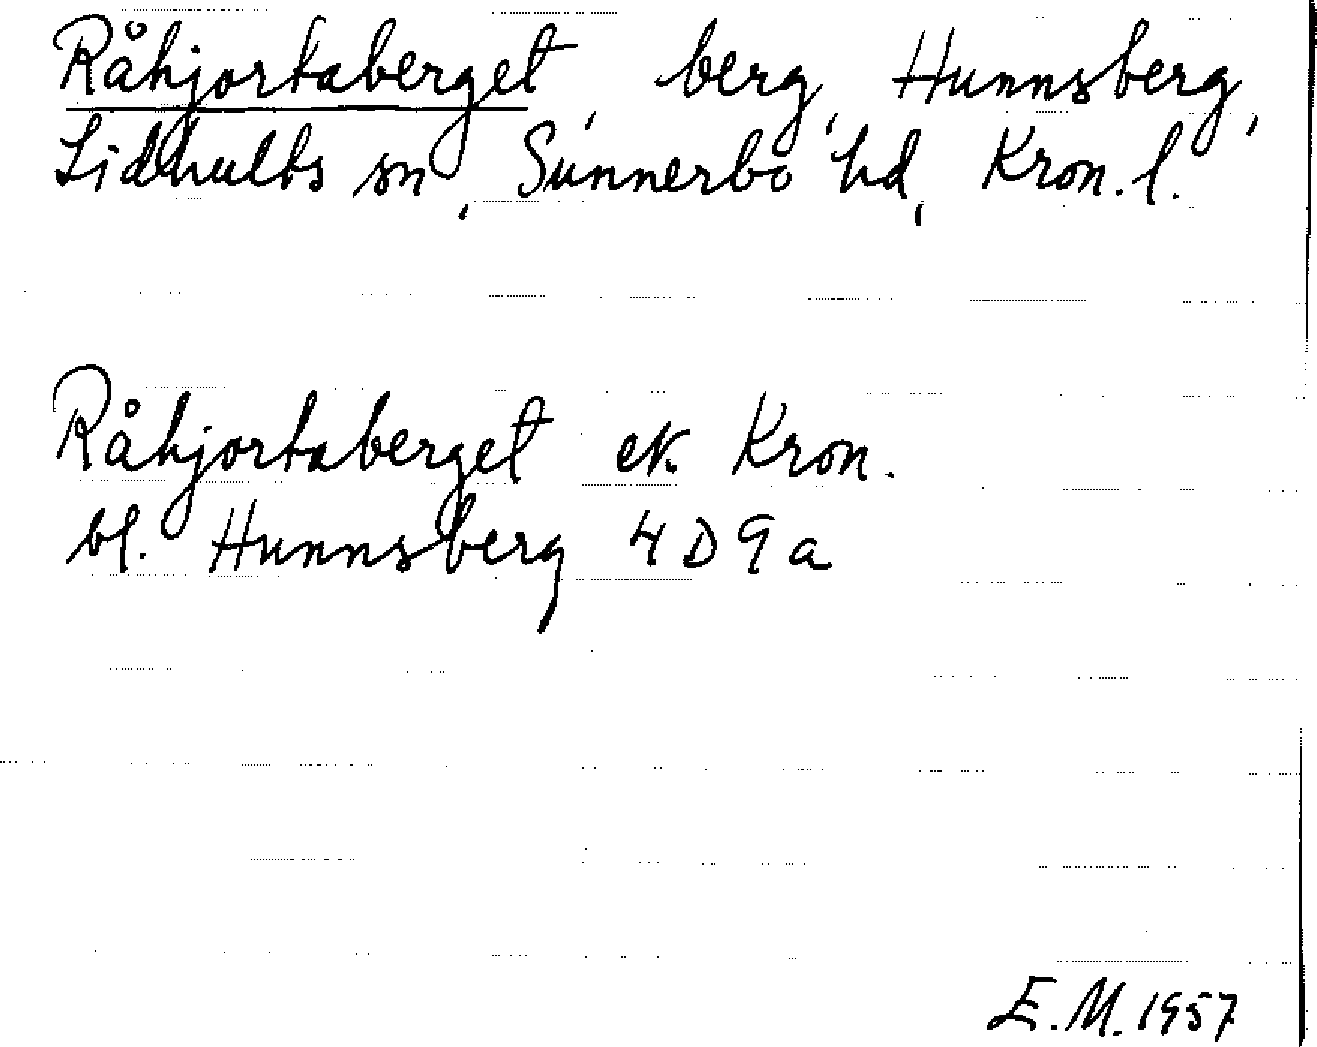 Råhjortaberget, berg, Hunnsberg,
Lidhults sn, Sunnerbo hd, Kron. l.
Råhjortaberget ek. Kron.
bl. Hunnsberg 4D9a
E.M. 1957